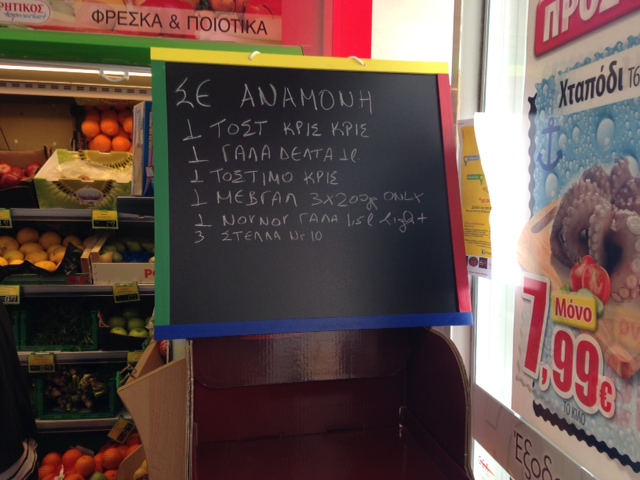 ΡΗΤΙΚΟΣ
ΦΡΕΣΚΑ & ΠΟΙΟΤΙΚΑ
ΣΕ ΑΝΑΜΟΝΗ
1 ΤΟΣΤ ΚΡΙΣ ΚΡΙΣ
1 ΓΑΛΑ ΔΕΛΤΑ 1l
1 ΤΟΣΤΙΜΟ ΚΡΙΣ
1 ΜΕΒΓΑΛ 3x200g ONLY
1 ΝΟΥΝΟΥ ΓΑΛΑ 1,5l light
3 ΣΤΕΛΛΑ Nr 10
ΠΡΟΣ
Χταπόδι Τ6
Μόνο
7,99€
ΤΟ ΚΙΛΟ
Έξοδο